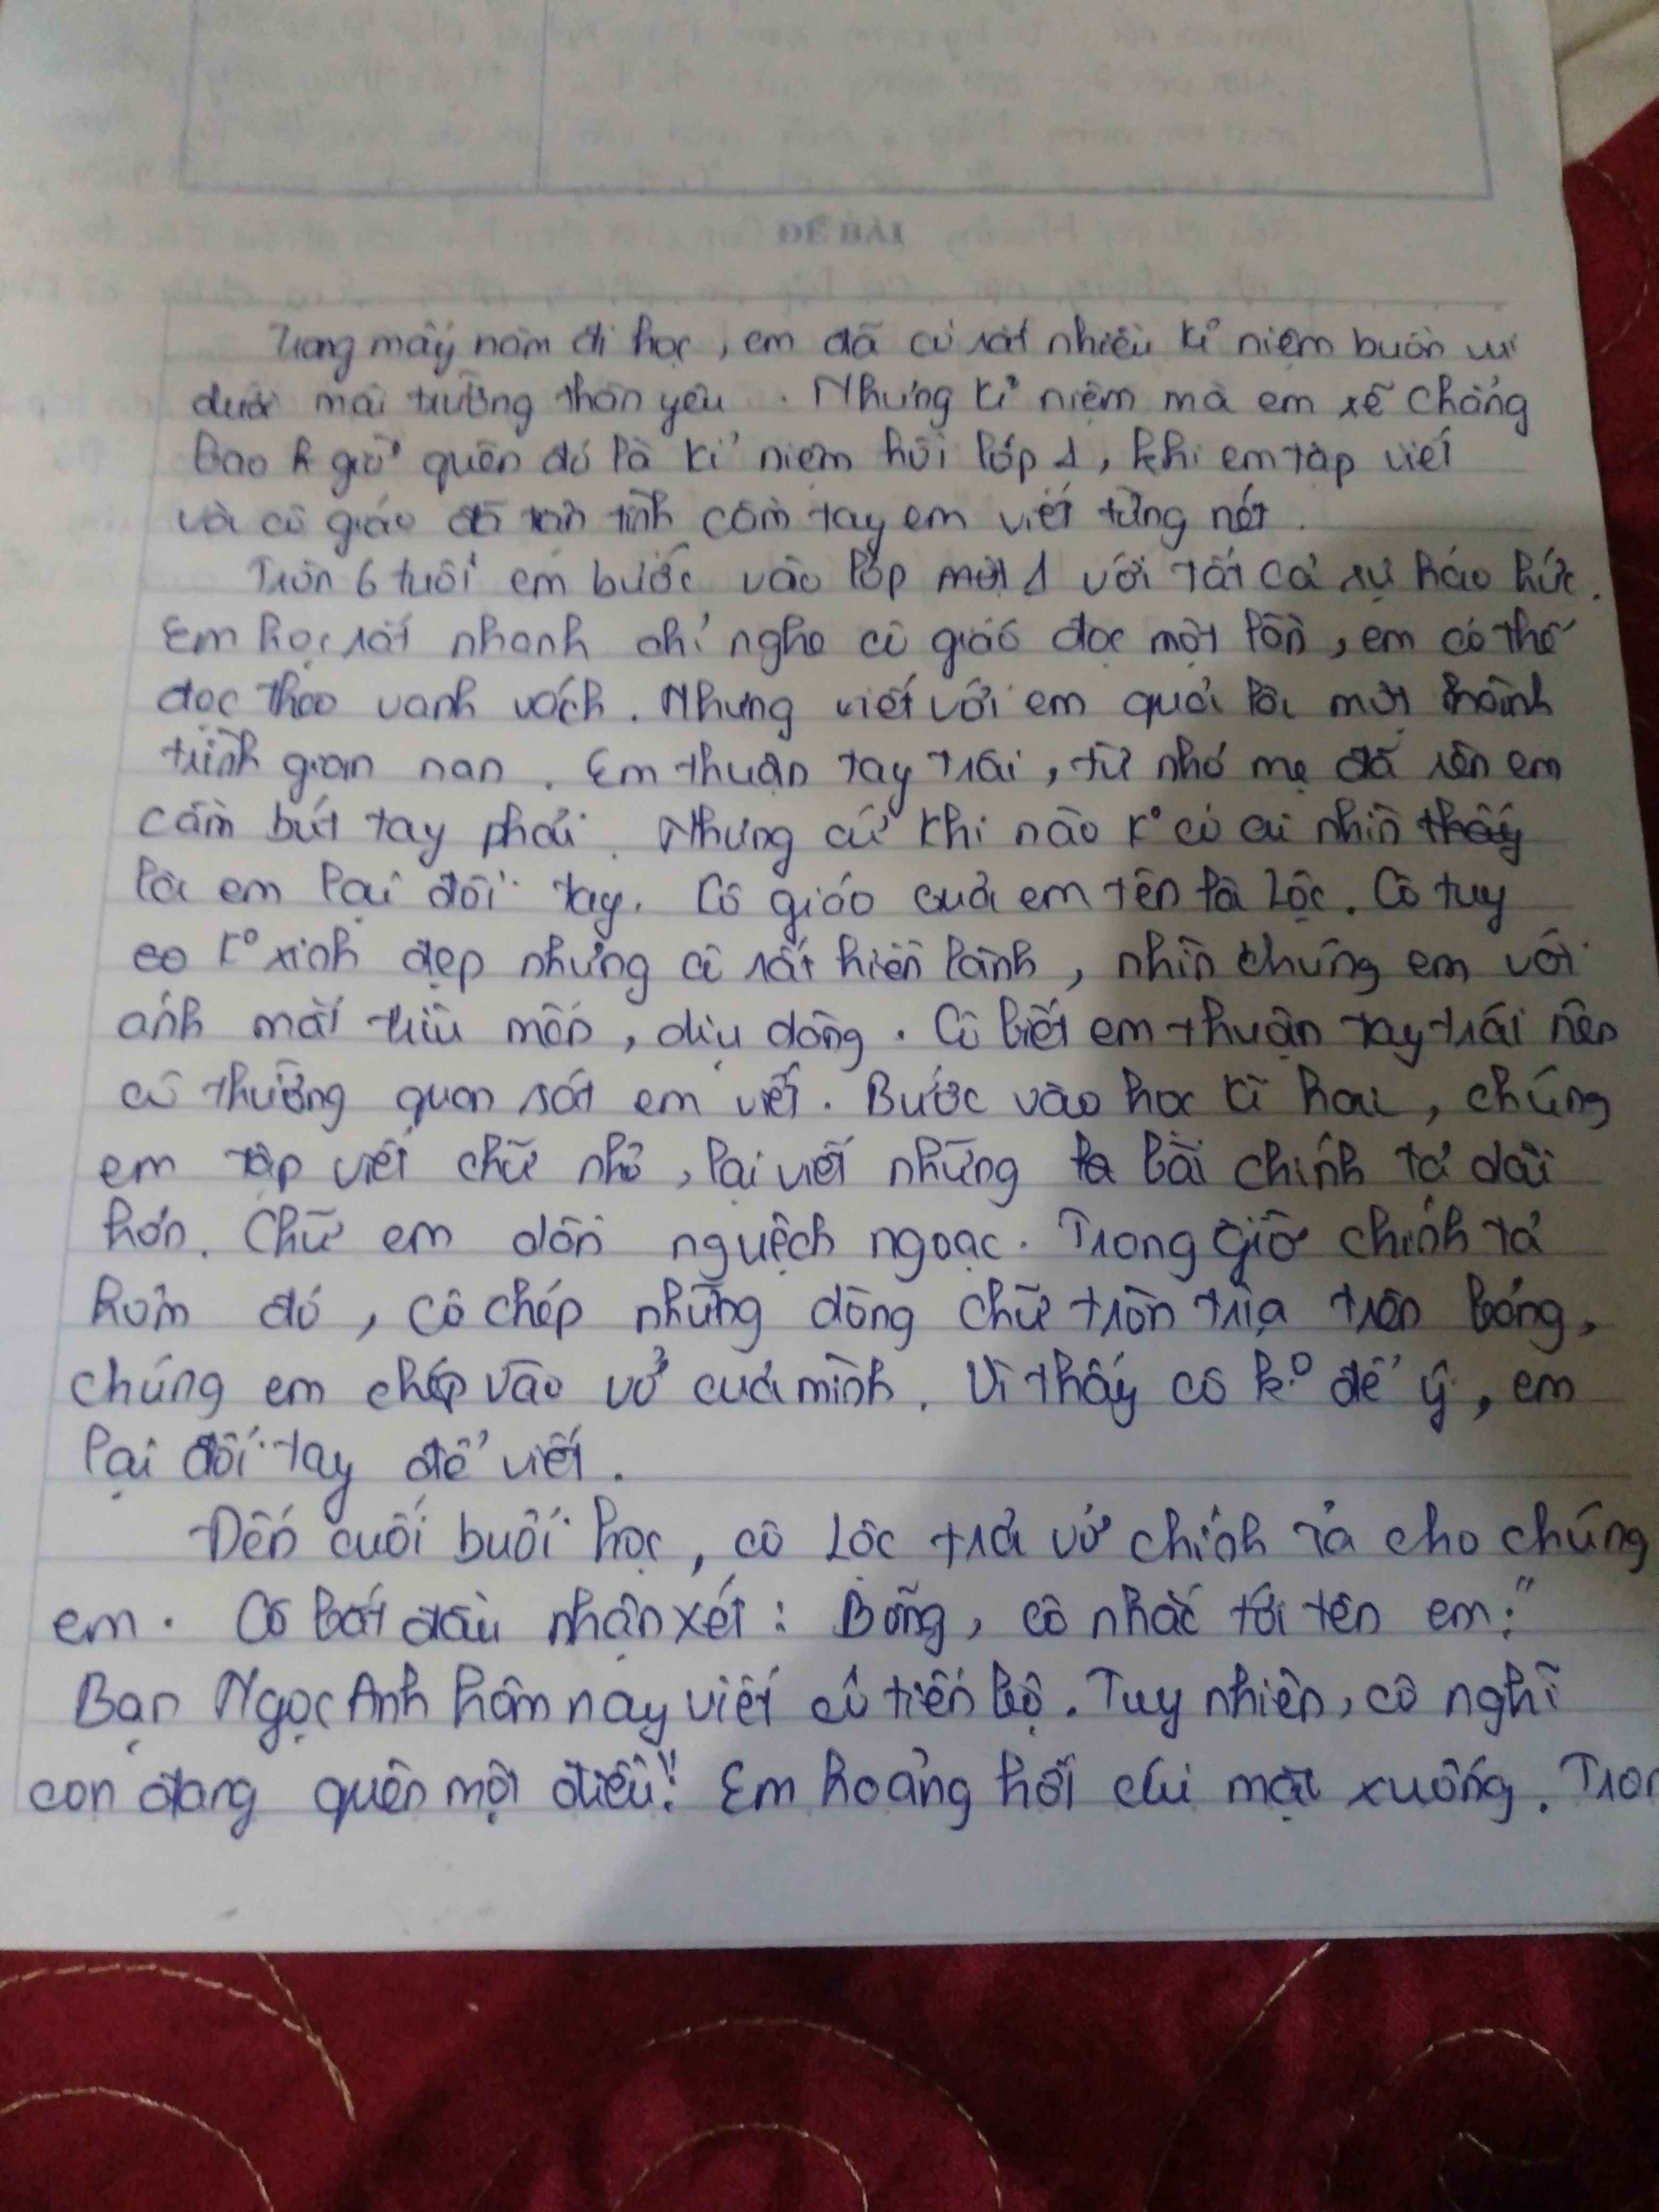 ĐỀ BÀI
Trong mấy năm đi học, em đã có rất nhiều kỉ niệm buồn vui
dưới mái trường thân yêu. Nhưng kỉ niệm mà em xẽ chẳng
bao giờ quên đó là kỉ niệm hồi lớp 1, khi em tập viết
và cô giáo đã tận tình cầm tay em viết từng nét.
Tròn 6 tuổi em bước vào lớp 1 với tất cả sự háo hức.
Em học rất nhanh chỉ nghe cô giáo đọc một lần, em có thể
đọc theo vanh vách. Nhưng viết với em quả là một hành
trình gian nan. Em thuận tay trái, từ nhỏ mẹ đã rèn em
cầm bút tay phải. Nhưng cứ khi nào k° có ai nhìn thấy
là em lại đổi tay. Cô giáo của em tên là Lộc. Cô tuy
k° xinh đẹp nhưng cô rất hiền lành, nhìn chúng em với
ánh mắt trìu mến, dịu dàng. Cô biết em thuận tay trái nên
cô thường quan sát em viết. Bước vào học kì hai, chúng
em tập viết chữ nhỏ, lại viết những bài chính tả dài
hơn. Chữ em dần nguệch ngoạc. Trong giờ chính tả
hôm đó, cô chép những dòng chữ tròn trịa trên bảng,
chúng em chép vào vở của mình. Vì thấy cô k° để ý, em
lại đổi tay để viết.
Đến cuối buổi học, cô Lộc trả vở chính tả cho chúng
em. Cô bắt đầu nhận xét: Bỗng, cô nhắc tới tên em:"
Bạn Ngọc Anh hôm nay viết có tiến bộ. Tuy nhiên, cô nghĩ
con đang quên một điều". Em hoảng hốt cúi mặt xuống. Tron